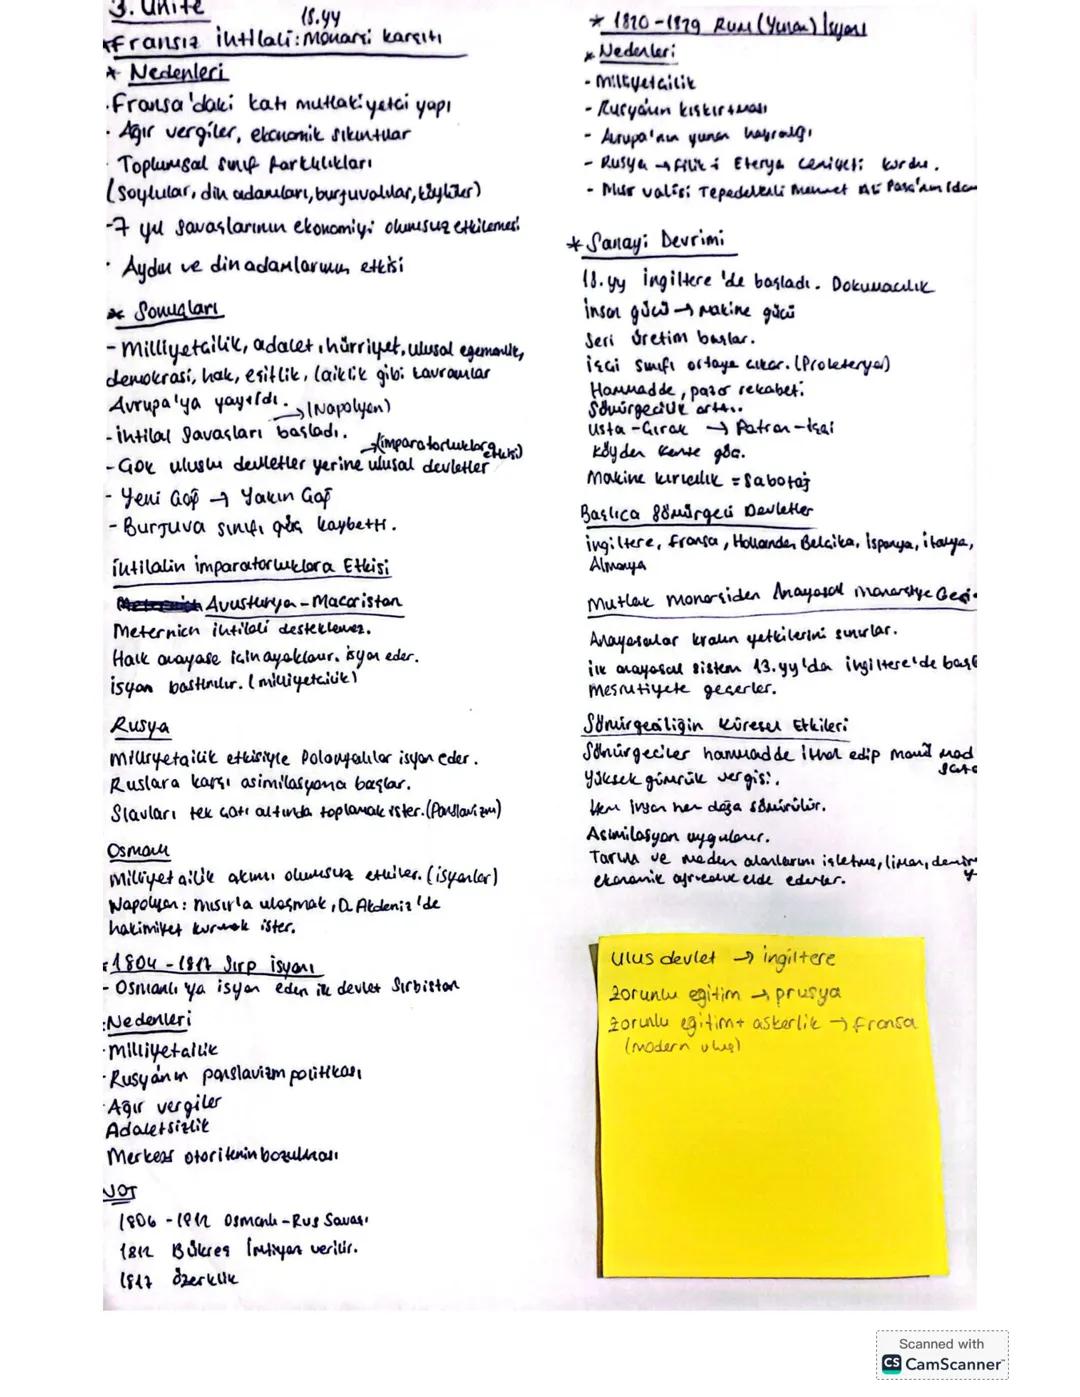 3. Ünite
18.yy
*Fransız ihtilali: Monarşi karşıtı
* Nedenleri
· Fransa'daki katı mutlakiyetçi yapı
· Ağır vergiler, ekonomik sıkıntılar
· Toplumsal sınıf farklılıkları
(Soylular, din adamları, burjuvalılar, köylüler)
-7 yıl savaşlarının ekonomiyi olumsuz etkilemesi
· Aydın ve din adamlarının etkisi
* Sonuçları
- Milliyetçilik, adalet, hürriyet, ulusal egemenlik,
demokrasi, hak, eşitlik, laiklik gibi kavramlar
Avrupa'ya yayıldı.
→(Napolyon)
- ihtilal Savaşları başladı.
→(imparatorluklara etkisi)
- Çok uluslu devletler yerine ulusal devletler
- Yeni Çağ → Yakın Çağ
- Burjuva sınıfı güç kaybetti.
ihtilalin imparatorluklara Etkisi
Avusturya - Macaristan
Meternich ihtilali desteklemez.
Halk anayasa için ayaklanır. isyan eder.
isyan bastırılır. (milliyetçilik)
Rusya
Milliyetçilik etkisiyle Polonyalılar isyan eder.
Ruslara karşı asimilasyona başlar.
Slavları tek çatı altında toplamak ister. (Panslavizm)
Osmanlı
Milliyetçilik akımı olumsuz etkiler. (isyanlar)
Napolyon: Mısır'la ulaşmak, D. Akdeniz'de
hakimiyet kurmak ister.
*1804 - 1817 Sırp isyanı
- Osmanlı'ya isyan eden ilk devlet Sırbistan
:Nedenleri
· Milliyetçilik
· Rusya'nın panslavizm politikası
· Ağır vergiler
Adaletsizlik
Merkezi otoritenin bozulması
NOT
1806 - 1812 Osmanlı - Rus Savaşı
1812 Bükreş İmtiyaz verilir.
1817 özerklik
* 1820 - 1829 Rum (Yunan) İsyanı
* Nedenleri
- Milliyetçilik
- Rusya'nın kışkırtması
- Avrupa'nın yunan hayranlığı
- Rusya → Filik-i Eterya cemiyeti kurdu.
- Mısır valisi Tepedelenli Mehmet Ali Paşa'nın idam
* Sanayi Devrimi
18.yy İngiltere'de başladı. Dokumacılık
insan gücü → makine gücü
Seri üretim başlar.
işçi sınıfı ortaya çıkar. (Proleterya)
Hammadde, pazar rekabeti
Sömürgecilik arttı.
Usta - Çırak → Patron - işçi
Köyden kente göç.
Makine kırıcılık = Sabotaj
Başlıca Sömürgeci Devletler
ingiltere, fransa, Hollanda, Belçika, İspanya, italya,
Almanya
Mutlak monarşiden Anayasal monarşiye Geçi
Anayasalar kralın yetkilerini sınırlar.
ilk anayasal sistem 13.yy'da ingiltere'de başl
mesrutiyete geçerler.
Sömürgeciliğin Küresel Etkileri
Sömürgeciler hammadde ithal edip mad
Yüksek gümrük vergisi.
Hem insan hem doğa sömürülür.
Asimilasyon uygulanır.
Tarım ve maden alanlarını işletme, liman, demir
ekonomik ayrıcalık elde ederler.
Ulus devlet → ingiltere
zorunlu eğitim → prusya
zorunlu eğitim + askerlik → fransa
(modern ulus)
Scanned with
CS CamScanner